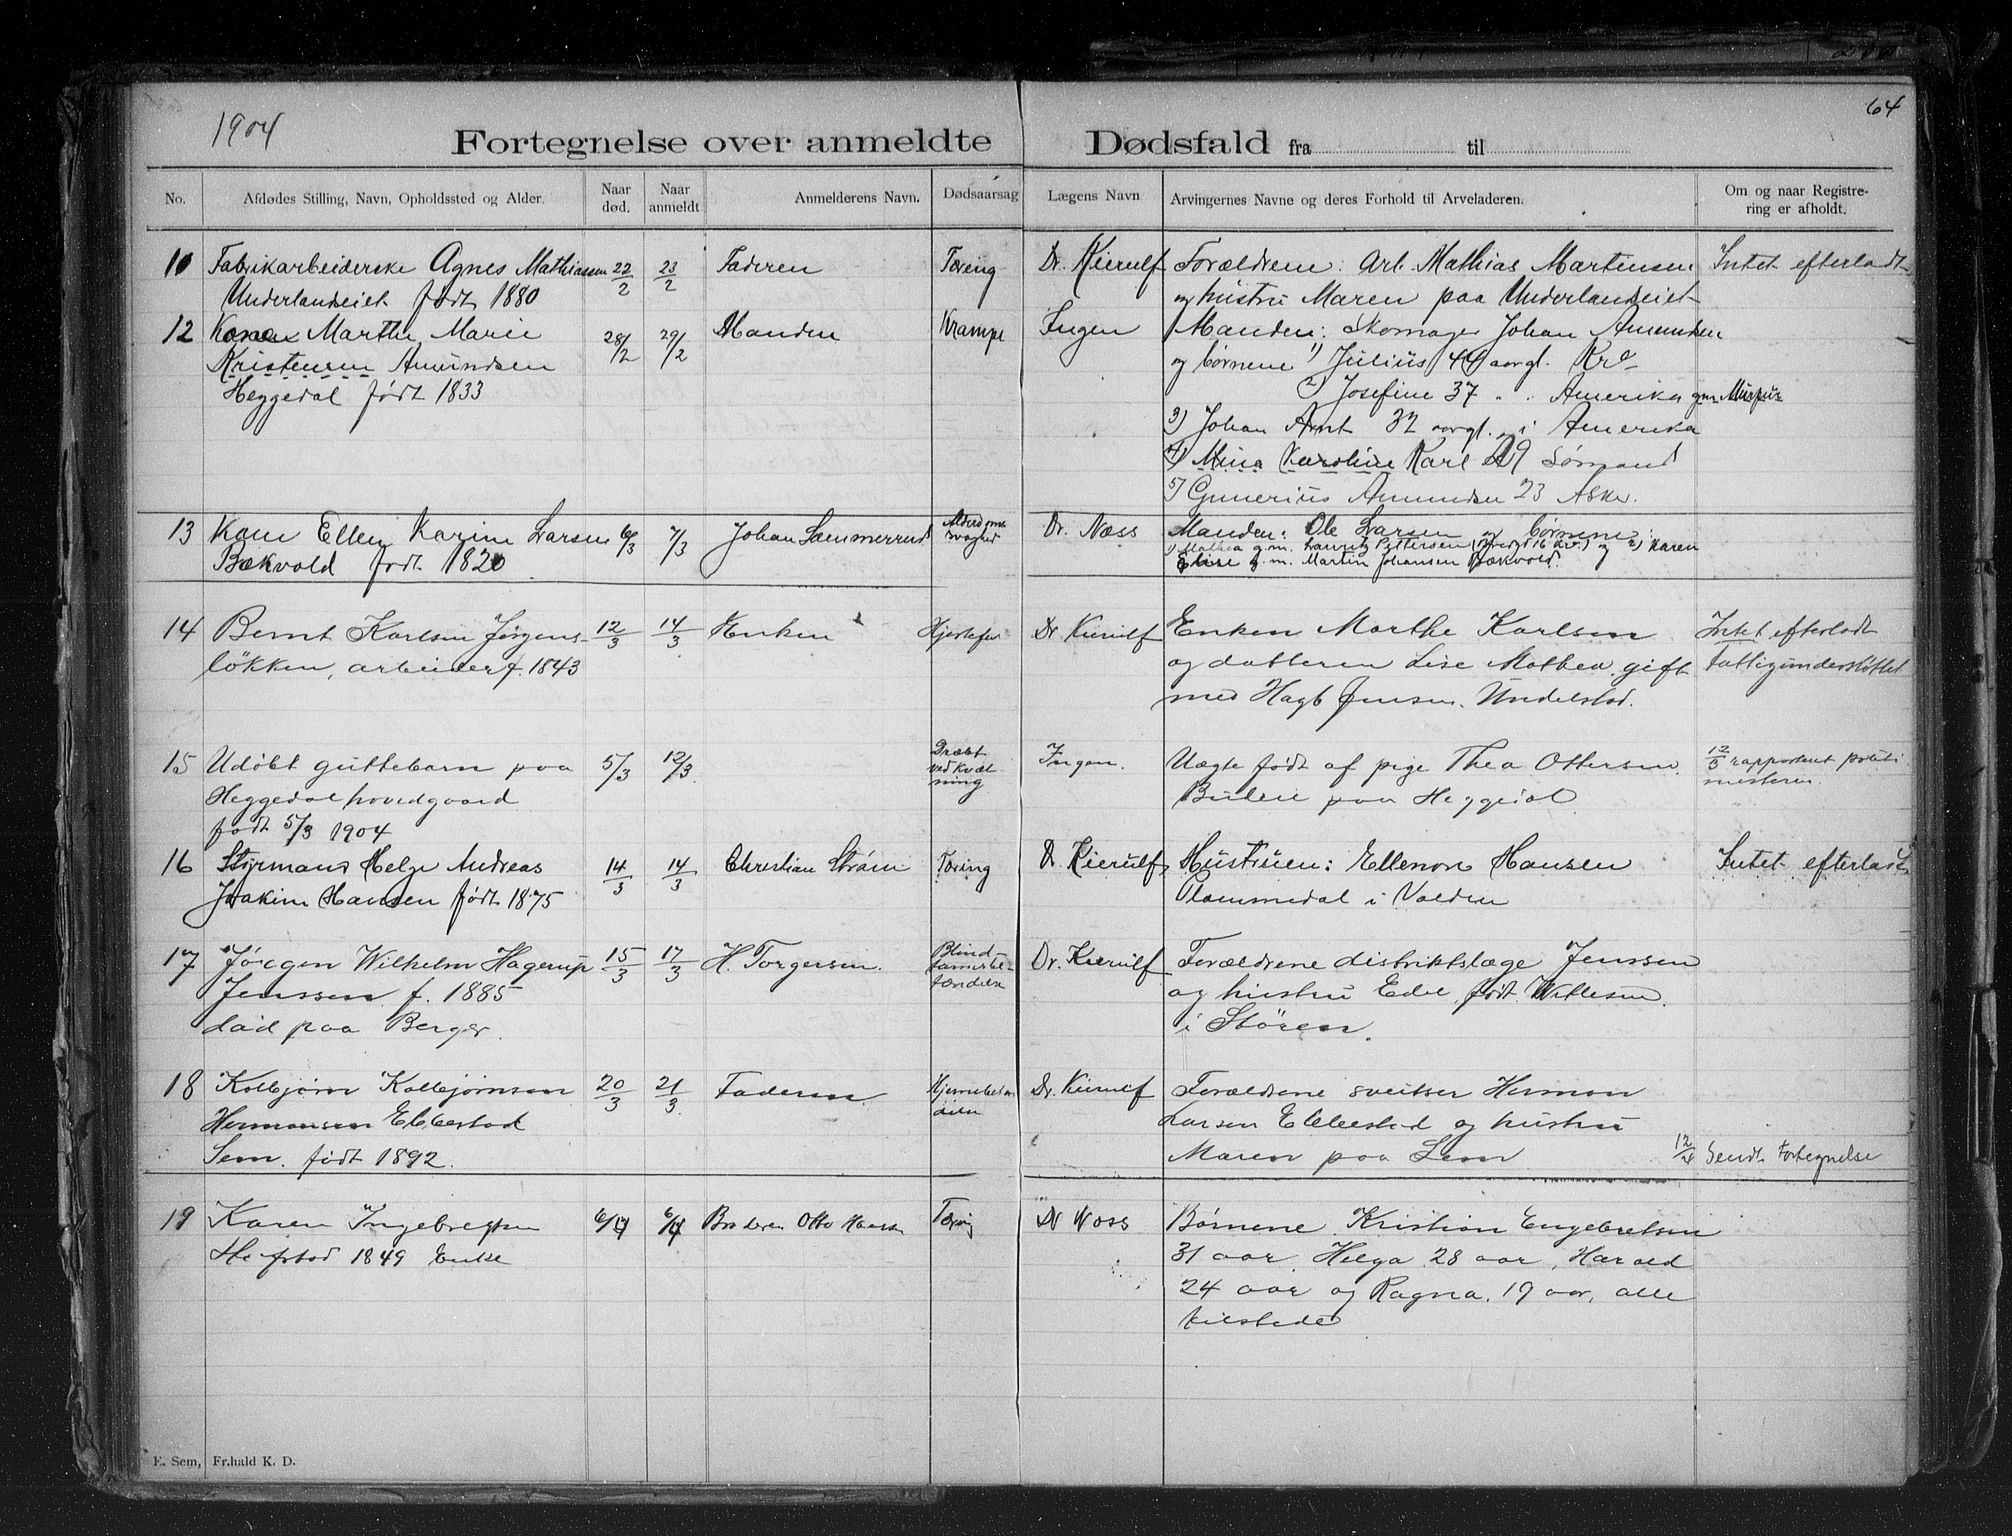 1904
64
Fortegnelse over anmeldte Dødsfald fra til
No.
Afdødes Stilling, Navn, Opholdssted og Alder.
Naar død.
Naar anmeldt
Anmelderens Navn.
Dødsaarsag
Lægens Navn
Arvingernes Navne og deres Forhold til Arveladeren.
Om og naar Registrering er afholdt.
10 Fabrikarbeiderske Agnes Mathiassen 22/2 23/2 Faderen Tæring Dr. Kierulf Forældrene: Arb. Mathias Martensen Intet efterladt
Underlandseiet født 1880 og hustru Maren paa Underlandseiet
12 Kone Marthe Marie 28/2 29/2 Manden Krampe Ingen Manden: Skomager Johan Amundsen
Kristensen Amundsen og børnene 1) Julius 44 aargl. Kra
Heggedal født 1833 2) Josefine 37 " " Amerika gm
3) Johan Arnt 32 aargl. i Amerika
4) Mina Karoline Karl 29 Sømand
5) Gunerius Amundsen 23 Asker.
13 Kone Ellen Karine Larsen 6/3 7/3 Johan Sæmmerrud Alderdomssvaghed Dr. Næss Manden: Ole Larsen og børnene:
Bækvold født. 1820 1) Mathea g.m. Lauritz Pettersen og 2) Karen
Elise g.m. Martin Johansen Bækvold.
14 Bernt Karlsen Jørgens- 12/3 14/3 Enken Hjertefeil Dr Kierulf Enken Marthe Karlsen Intet efterladt
løkken, arbeider f. 1843 og datteren Lise Mathea gift Fattigunderstøttet
med Hagb Jensen. Undelstad.
15 Udøbt guttebarn paa 5/3 12/3 Dræbt ved kvælning Ingen. Uægte født af pige Thea Ottersen 12/3 rapporteret politi
Heggedal hovedgaard paa Heggedal mesteren.
født 5/3 1904
16 Styrmand Helge Andreas 14/3 14/3 Christian Strøm Tæring D. Kierulf Hustruen: Ellenore Hansen Intet efterladt
Joakim Hansen født 1875 Plommedal i Valden
17 Jørgen Wilhelm Hagerup 15/3 17/3 H. Torgersen. Blindtarmsbetændelse Dr. Kierulf Forældrene distriktslæge Jenssen
Jenssen f. 1885 og hustru Edle født Willesen
død paa Berger i Støren.
18 Kolbjørn Kolbjørnsen 20/3 21/3 Faderen Dr. Kierulf Forældrene sveitser Herman
Hermansen Ebbestad Larsen Ebbestad og hustru
Sem. født 1892. Maren paa Sem 12/4 Sendt Fortegnelse
19 Karen Ingebregtsen 6/4 6/4 Broderen Otto Hansen Tæring Dr Næss Børnene Kristian Engebretsen
1849 Enke 31 aar, Helga 28 aar, Harald
24 aar og Ragna 19 aar, alle
tilstede
E. Sem, Fr.hald K. D.